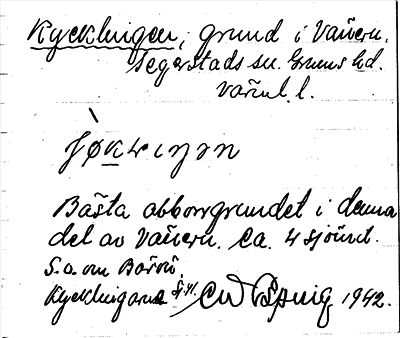 Kycklingen, grund i Vänern.
Segerstads sn. Grums hd.
Värml. l.
Bästa abborrgrundet i denna
del av Vänern. Ca. 4 sjömt.
S.o. om Borön.
Kycklingarna 1942.